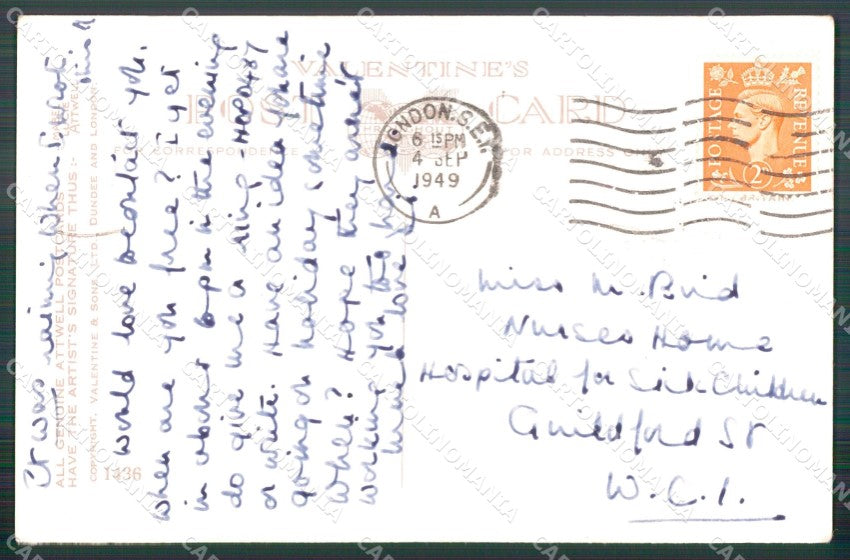 VALENTINE'S
POST CARD
FOR CORRESPONDENCE
FOR ADDRESS ONLY
LONDON. S.E.1.
6 15 PM
4 SEP
1949
A
POSTAGE
REVENUE
2D
It was raining when I wrote
this
would love to contact you.
When are you free? I get
in about 6 pm in the evening
do give me a ring HOP 0487
or write. Have an idea you are
going on holiday sometime
When? Hope they aren't
working you too hard
much love
Miss M. Bird
Nurses Home
Hospital for Sick Children
Guildford St
W.C.1.
ALL GENUINE ATTWELL POSTCARDS
HAVE THE ARTIST'S SIGNATURE THUS :-
ATTWELL
COPYRIGHT, VALENTINE & SONS, LTD., DUNDEE AND LONDON
1336
CARTOLINOMANIA